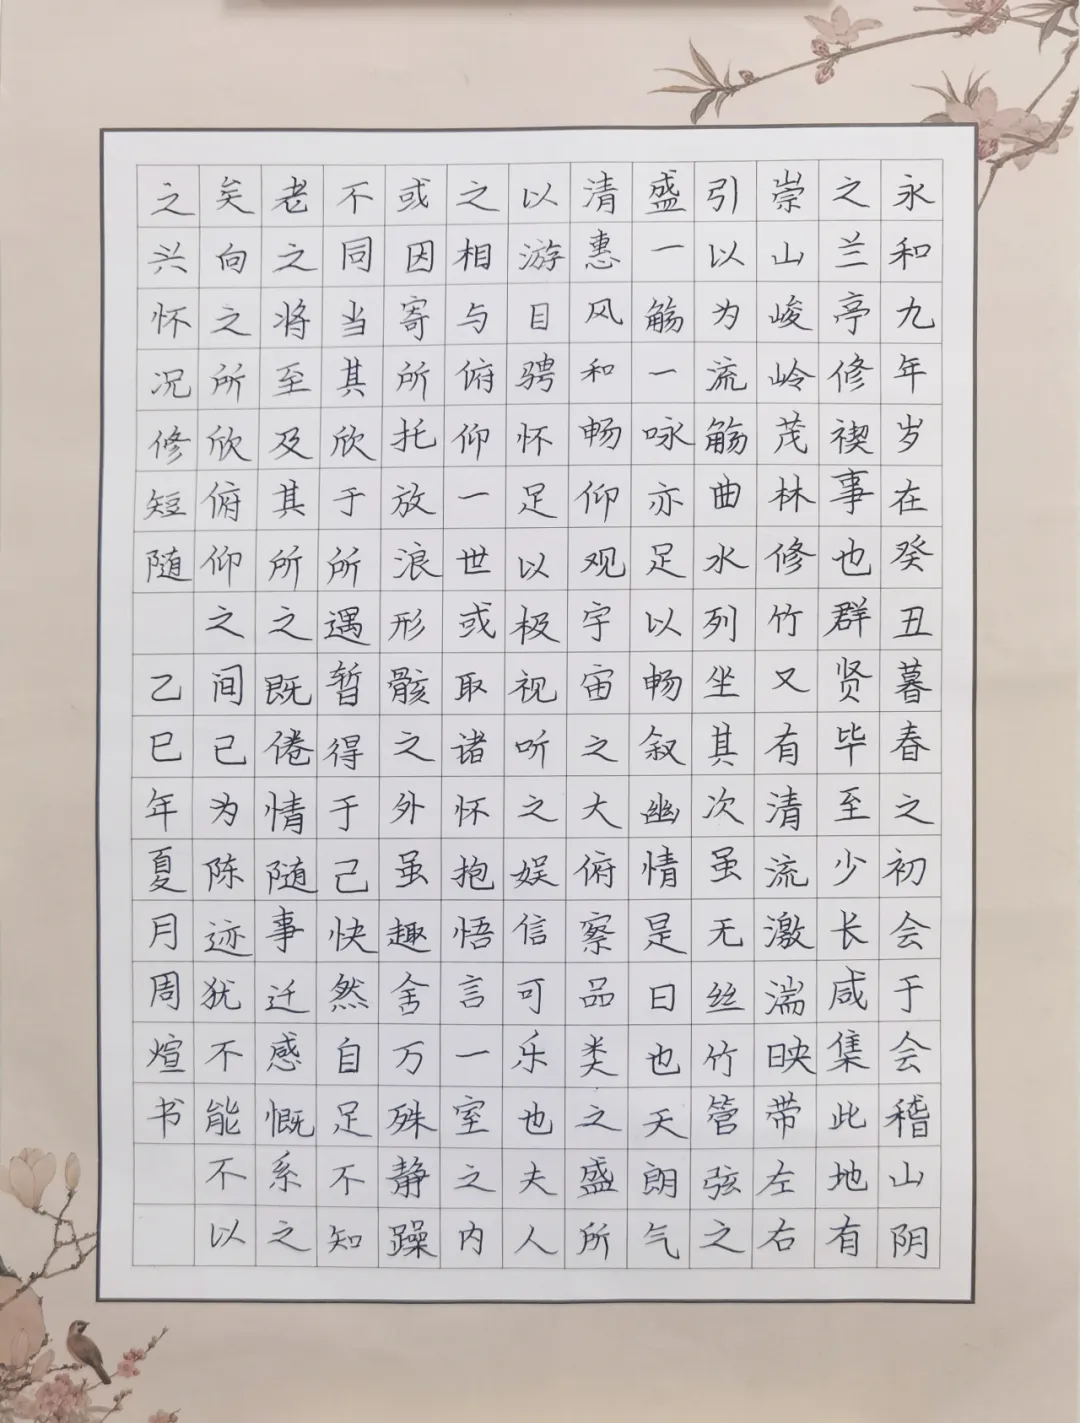 永和九年岁在癸丑暮春之初会于会稽山阴
之兰亭修禊事也群贤毕至少长咸集此地有
崇山峻岭茂林修竹又有清流激湍映带左右
引以为流觞曲水列坐其次虽无丝竹管弦之
盛一觞一咏亦足以畅叙幽情是日也天朗气
清惠风和畅仰观宇宙之大俯察品类之盛所
以游目骋怀足以极视听之娱信可乐也夫人
之相与俯仰一世或取诸怀抱悟言一室之内
或因寄所托放浪形骸之外虽趣舍万殊静躁
不同当其欣于所遇暂得于己快然自足不知
老之将至及其所之既倦情随事迁感慨系之
矣向之所欣俯仰之间已为陈迹犹不能不以
之兴怀况修短随 乙巳年夏月周煊书